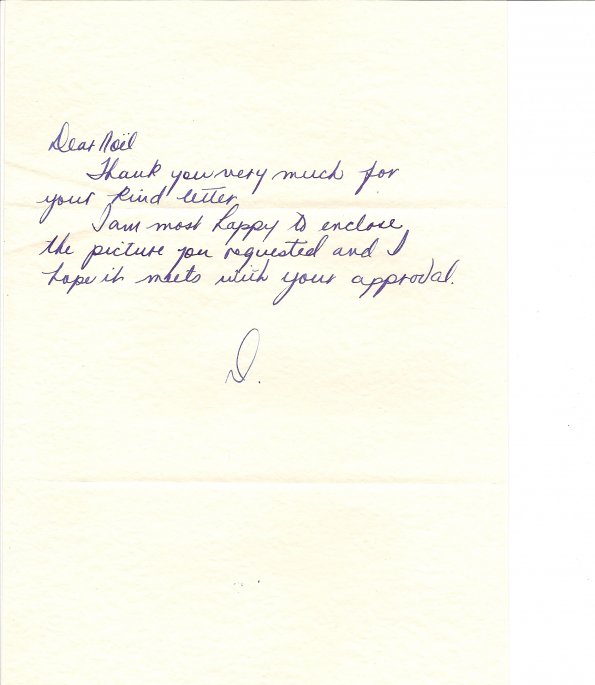 Dear Noël
Thank you very much for
your kind letter.
I am most happy to enclose
the picture you requested and I
hope it meets with your approval.
D.